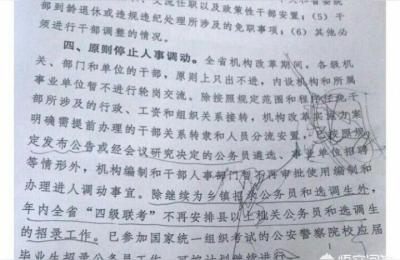 部到龄退休或违规违纪处理所涉及的免职事项；（6）其他必
须进行干部调整的情况。
四、原则停止人事调动。全省机构改革期间，各级机
关、部门和单位的干部，原则上只出不进，内设机构和所属
事业单位暂不进行轮岗交流。除按照规定范围和程序任免干
部所涉及的行政、工资和组织关系接转，机构改革实施方案
明确需提前办理的干部关系转隶和人员分流安置，已按照规
定发布公告或经会议研究决定的公务员遴选、事业单位招聘
等情形外，机构编制和干部人事部门暂不再审批使用编制和
办理进人调动事宜。除继续为乡镇招录公务员和选调生外，
年内全省“四级联考”不再安排县以上机关公务员和选调生
的招录工作。已参加国家统一组织考试的公安警察院校应届
悟空问答